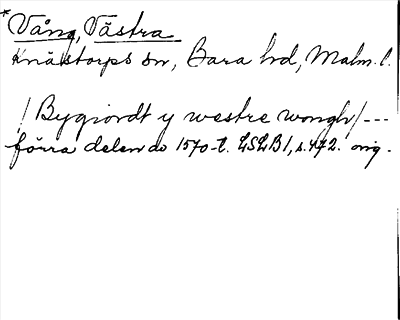 * Vång, Västra
Knästorps sn, Bara hd, Malm. l.
/ Bygiordt y westre wongh / ---
förra delen av 1570-t. LSLB 1, s. 472. orig.